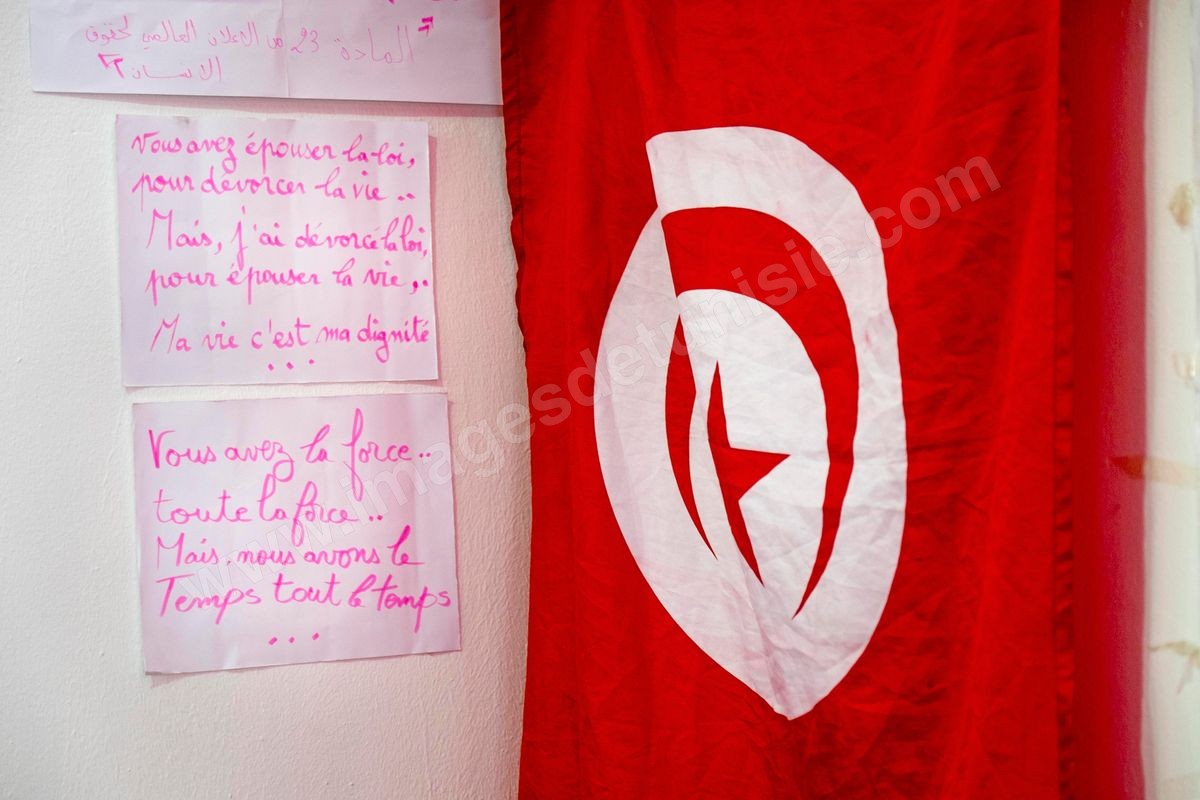 المادة 23 من الاعلان العالمي لحقوق
الانسان
Vous avez épouser la loi,
pour dévorcer la vie..
Mais, j'ai dévorcé la loi,
pour épouser la vie,..
Ma vie c'est ma dignité
...
Vous avez la force..
toute la force..
Mais, nous avons le
Temps tout le temps
...
www.imagesdetunisie.com